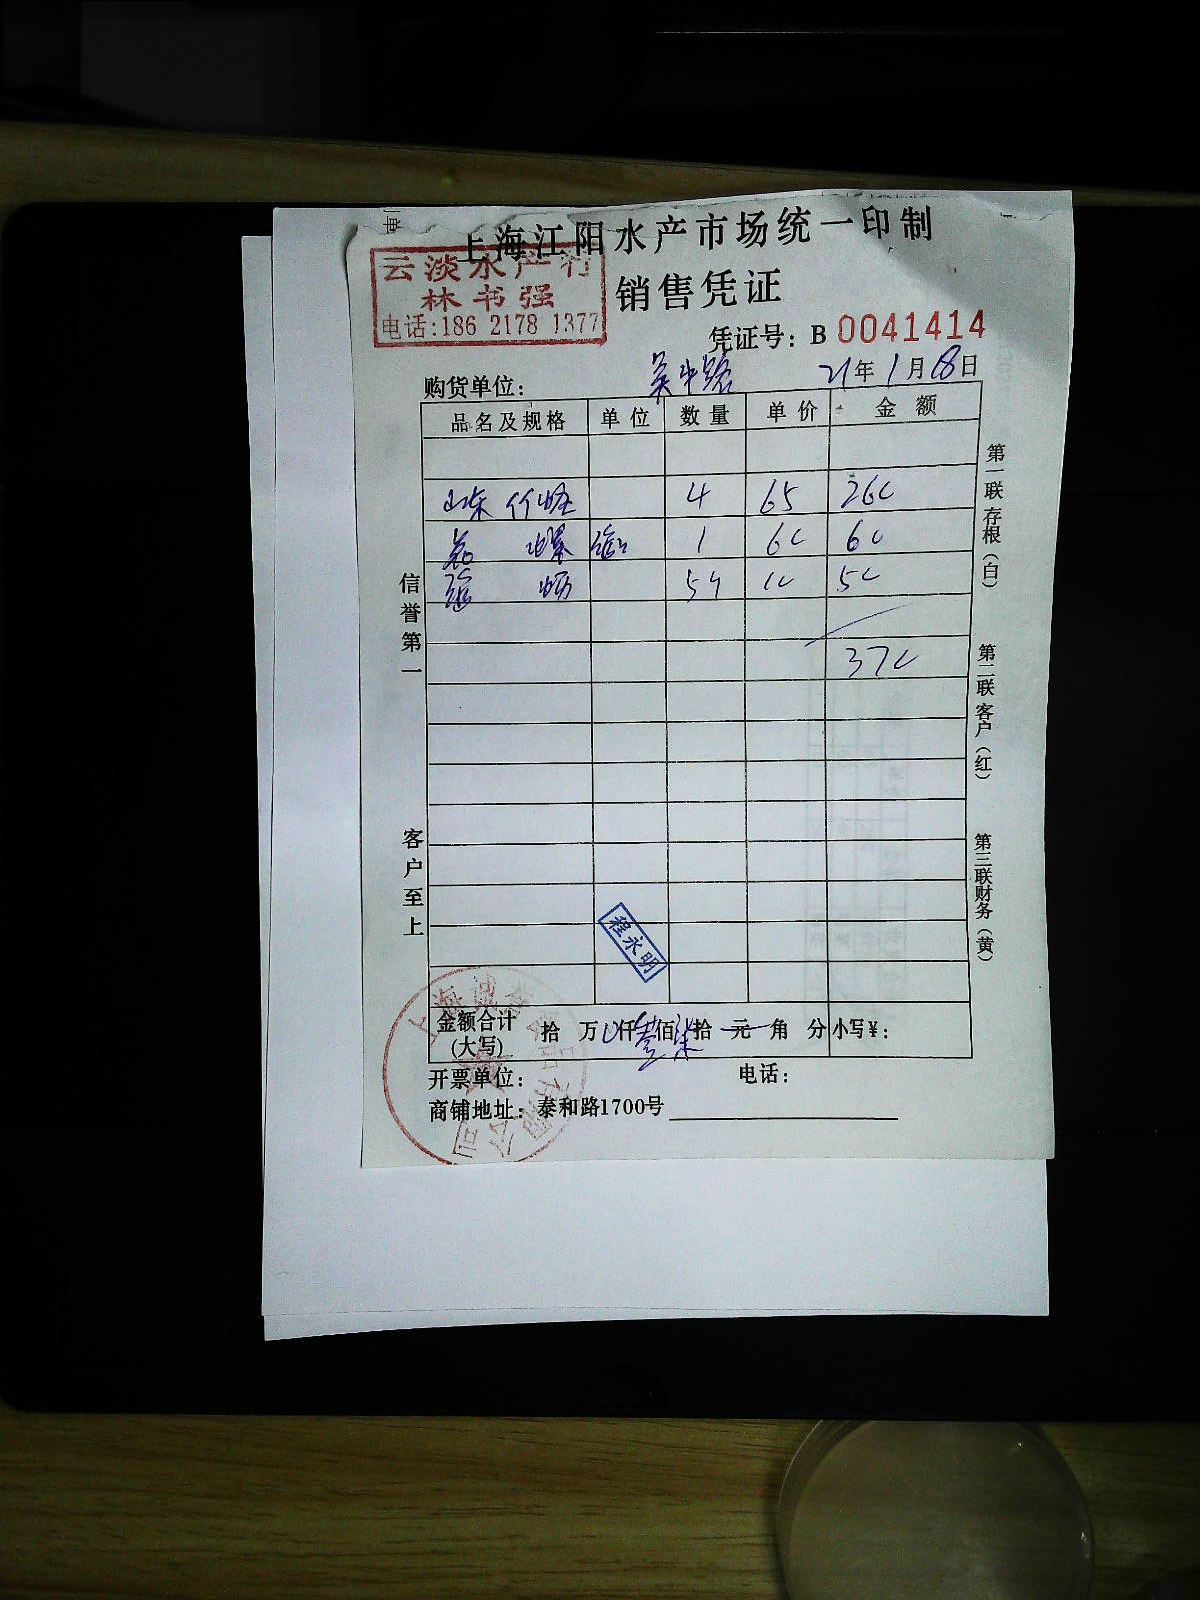 上海江阳水产市场统一印制
云淡水产行
林书强
电话:186 2178 1377
销售凭证
凭证号: B 0041414
购货单位:
21年1月18日
品名及规格 单位 数量 单价 金额
山东 4 65 260
1 60 60
10 50
370
信誉第一
客户至上
第一联 存根(白)
第二联 客户(红)
第三联 财务(黄)
程永明
金额合计(大写) 拾 万 仟 佰 柒 拾 元 角 分 小写¥:
开票单位: 电话:
商铺地址: 泰和路1700号